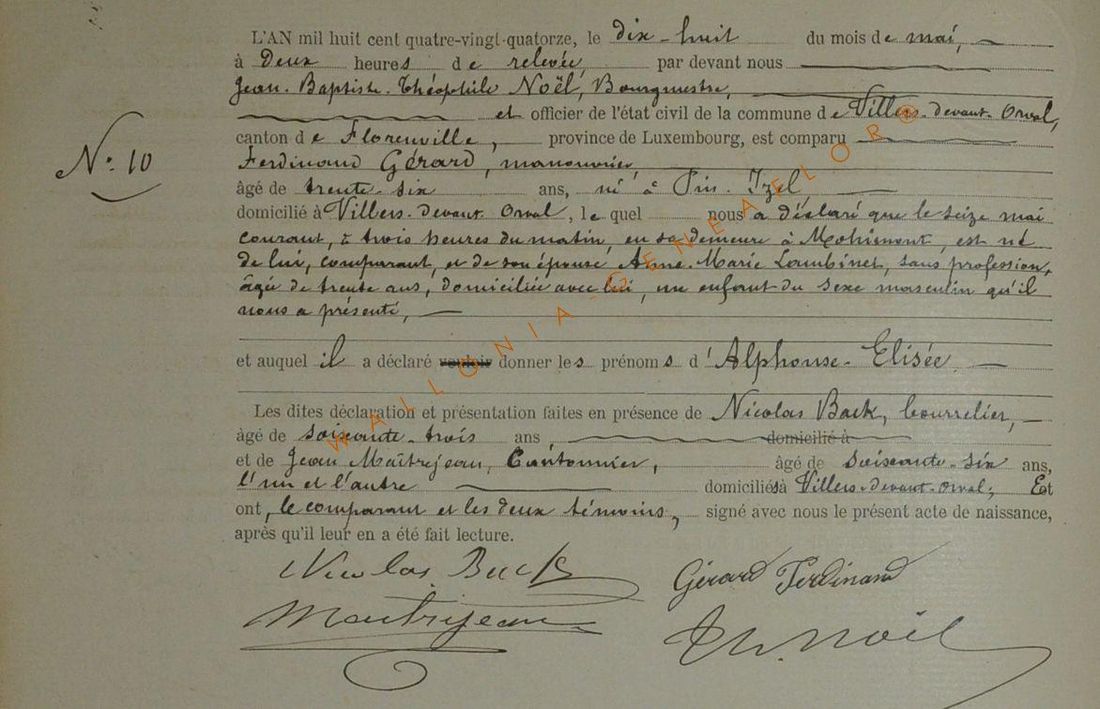 L'AN mil huit cent quatre-vingt-quatorze, le dix-huit du mois de mai,
à deux heures de relevée, par devant nous
Jean-Baptiste-Théophile Noël, Bourgmestre,
et officier de l'état civil de la commune de Villers-devant-Orval,
canton de Florenville, province de Luxembourg, est comparu
N° 10
Ferdinand Gérard, manouvrier,
âgé de trente-six ans, né à Pin-Izel,
domicilié à Villers-devant-Orval, lequel nous a déclaré que le seize mai
courant, à trois heures du matin, en sa demeure à Mohimont, est né
de lui, comparant, et de son épouse Anne-Marie Lambinet, sans profession,
âgée de trente ans, domiciliée avec lui, un enfant du sexe masculin qu'il
nous a présenté,
et auquel il a déclaré vouloir donner les prénoms d'Alphonse-Elisée
Les dites déclaration et présentation faites en présence de Nicolas Back, bourrelier,
âgé de soixante-trois ans, domicilié à
et de Jean Maîtrejean, Cantonnier, âgé de soixante-six ans,
l'un et l'autre domiciliés à Villers-devant-Orval; Et
ont, le comparant et les deux témoins, signé avec nous le présent acte de naissance,
après qu'il leur en a été fait lecture.
Nicolas Back
Gérard Ferdinand
Maitrejean
Th. Noël
WALLONIA-GENEALOR©